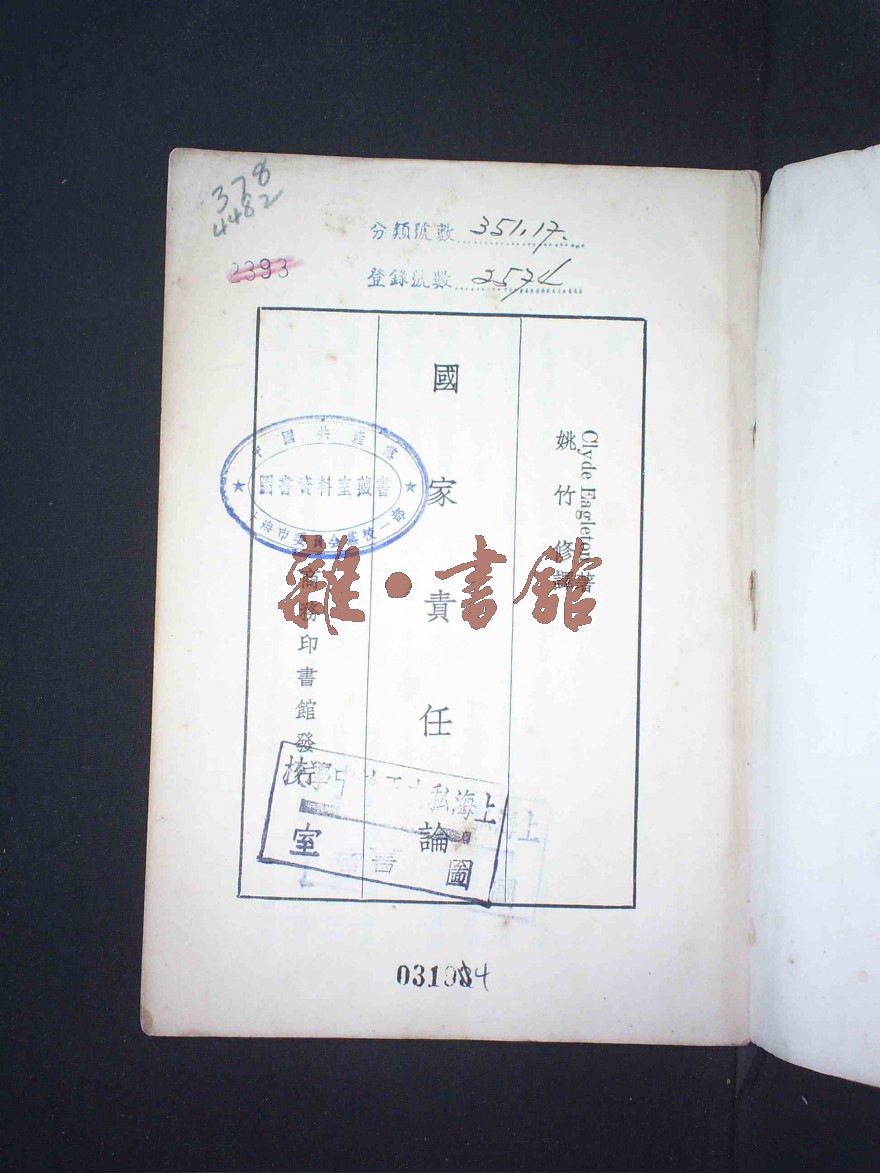 378
4482
分類號數 351.17.
登錄號數 2574
2393
Clyde Eagleton 著
姚竹修譯
國家責任論
商務印書館發行
中國共產黨
圖書資料室藏書
上海市委員會黨校一部
雜·書館
上海私立
中學校
圖書室